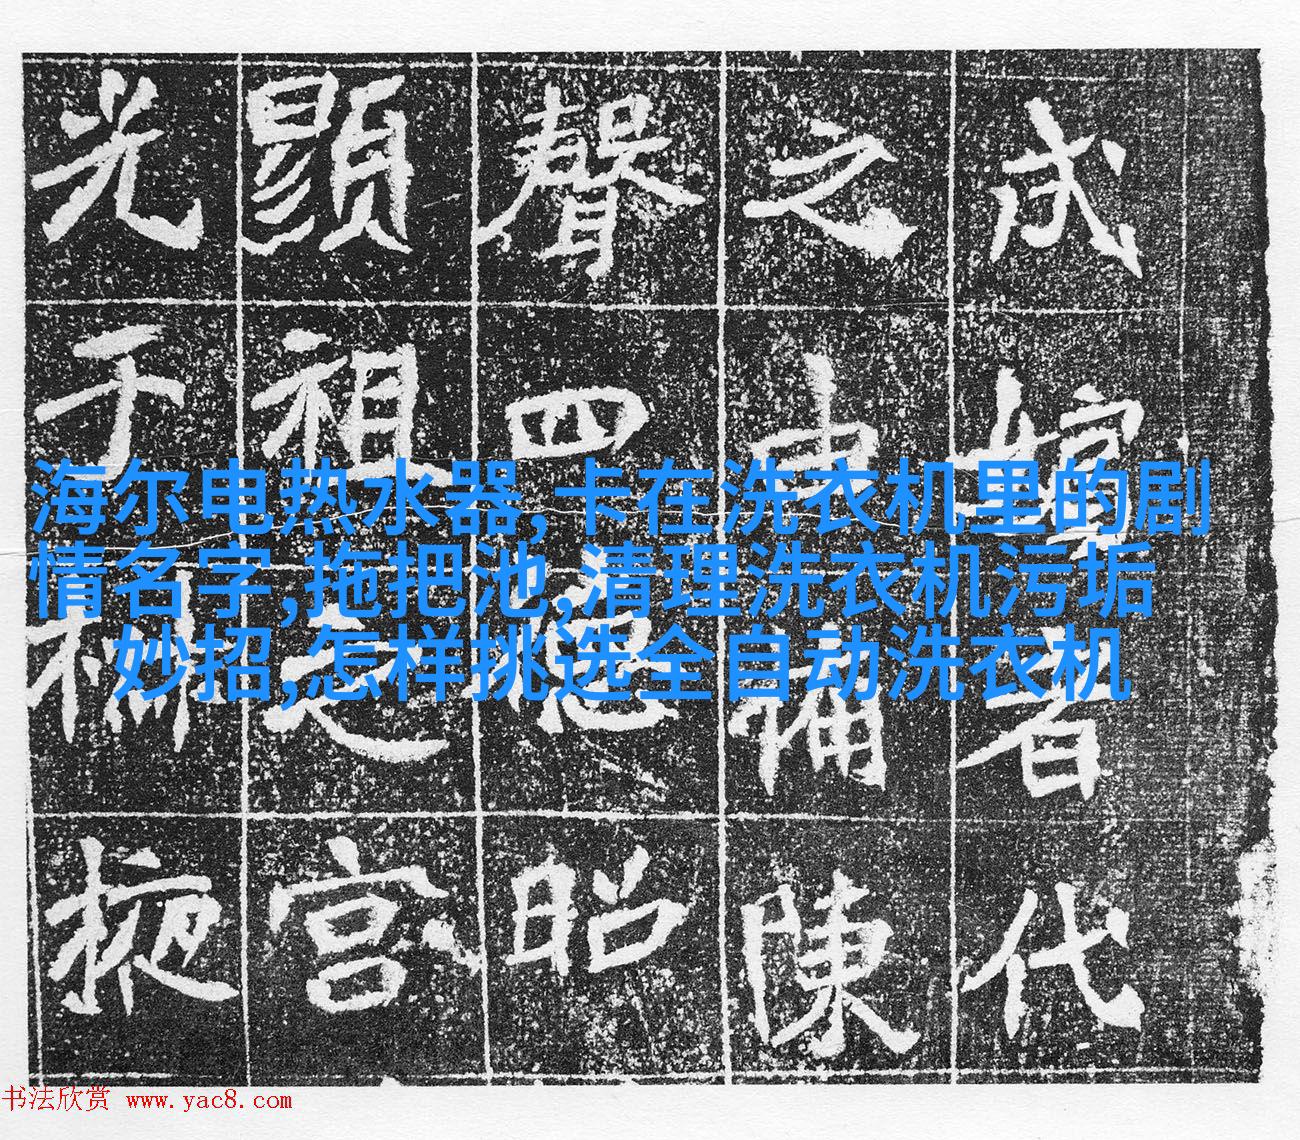 海尔电热水器,卡在洗衣机里的剧
情名字,拖把池,清理洗衣机污垢
妙招,怎样挑选全自动洗衣机
者代
之陳
聲四昭
顯祖之宮
光于掖
书法欣赏 www.yac8.com